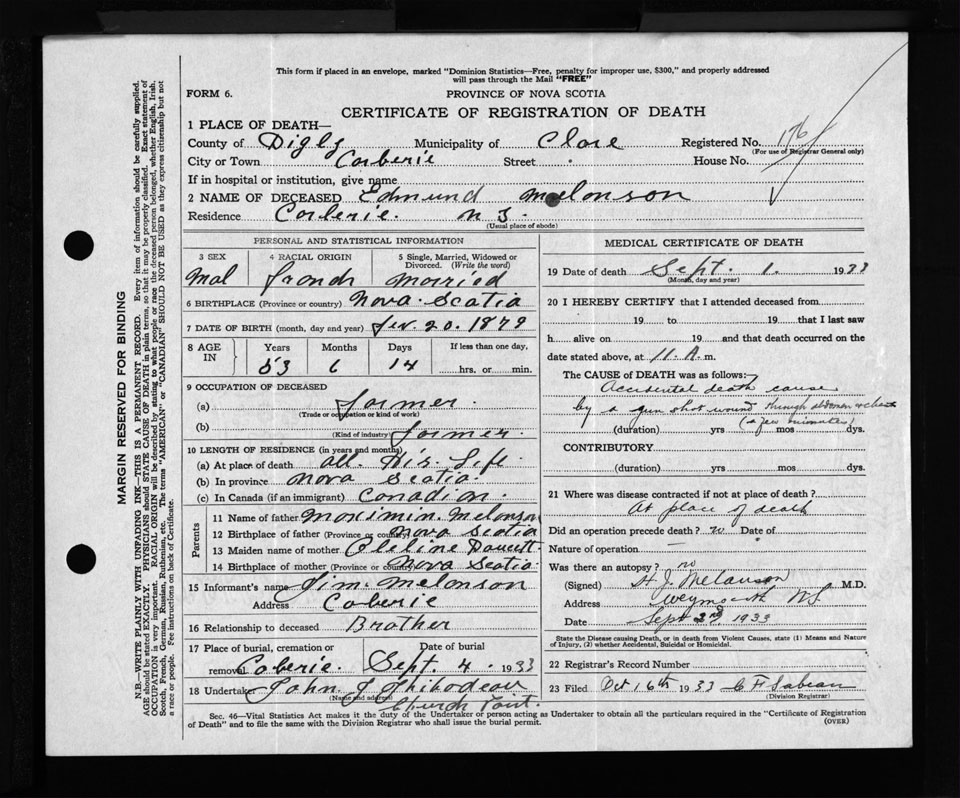 This form if placed in an envelope, marked "Dominion Statistics—Free, penalty for improper use, $300," and properly addressed
will pass through the Mail "FREE"
FORM 6. PROVINCE OF NOVA SCOTIA
CERTIFICATE OF REGISTRATION OF DEATH
1 PLACE OF DEATH—
County of Digby Municipality of Clare Registered No. 176
(For use of Registrar General only)
City or Town Corberie Street House No.
If in hospital or institution, give name
2 NAME OF DECEASED Edmund Melonson
Residence Corberie. N S.
(Usual place of abode)
PERSONAL AND STATISTICAL INFORMATION
3 SEX 4 RACIAL ORIGIN 5 Single, Married, Widowed or
Divorced. (Write the word)
Mal French Morried
6 BIRTHPLACE (Province or country) Nova Scotia
7 DATE OF BIRTH (month, day and year) 20. 1879
8 AGE IN Years Months Days If less than one day,
53 6 14 hrs. or min.
9 OCCUPATION OF DECEASED
(a) former.
(Trade or occupation or kind of work)
(b) former.
(Kind of industry)
10 LENGTH OF RESIDENCE (in years and months)
(a) At place of death all. His. Life
(b) In province Nova Scotia.
(c) In Canada (if an immigrant) Canadian.
Parents
11 Name of father Moximin. Melonson
12 Birthplace of father (Province or country) Nova Scotia
13 Maiden name of mother Doucett
14 Birthplace of mother (Province or country) Nova Scotia.
15 Informant's name Jim. Melonson
Address Coberie
16 Relationship to deceased Brother
17 Place of burial, cremation or Date of burial
removal Coberie. Sept. 4. 1933
18 Undertaker John J Thibodeau
(Name and address) Church Point.
MEDICAL CERTIFICATE OF DEATH
19 Date of death Sept. 1. 1933
(Month, day and year)
20 I HEREBY CERTIFY that I attended deceased from
19 to 19 that I last saw
h alive on 19 and that death occurred on the
date stated above, at 11. A. m.
The CAUSE of DEATH was as follows:
Accidental death cause
by a gun shot wound through abdomen & chest
(a few minutes)
(duration) yrs mos dys.
CONTRIBUTORY
(duration) yrs mos dys.
21 Where was disease contracted if not at place of death?
At place of death
Did an operation precede death? no Date of
Nature of operation —
Was there an autopsy? no
(Signed) H J. Melanson M.D.
Address Weymouth NS
Date Sept 2nd, 1933
State the Disease causing Death, or in death from Violent Causes, state (1) Means and Nature
of Injury, (2) whether Accidental, Suicidal or Homicidal.
22 Registrar's Record Number
23 Filed Oct 16th 1933 C F Sabean
(Division Registrar)
Sec. 46—Vital Statistics Act makes it the duty of the Undertaker or person acting as Undertaker to obtain all the particulars required in the "Certificate of Registration
of Death" and to file the same with the Division Registrar who shall issue the burial permit. (OVER)
MARGIN RESERVED FOR BINDING
N.B.—WRITE PLAINLY WITH UNFADING INK—THIS IS A PERMANENT RECORD. Every item of information should be carefully supplied.
AGE should be stated EXACTLY. PHYSICIANS should STATE CAUSE OF DEATH in plain terms, so that it may be properly classified. Exact statement of
OCCUPATION is very important. RACIAL ORIGIN will be described by stating to what people or race the deceased person belonged, whether English, Irish,
Scotch, French, German, Russian, Ruthenian, etc. The terms "AMERICAN" or "CANADIAN" SHOULD NOT BE USED as they express citizenship but not
a race or people. Fee instructions on back of Certificate.